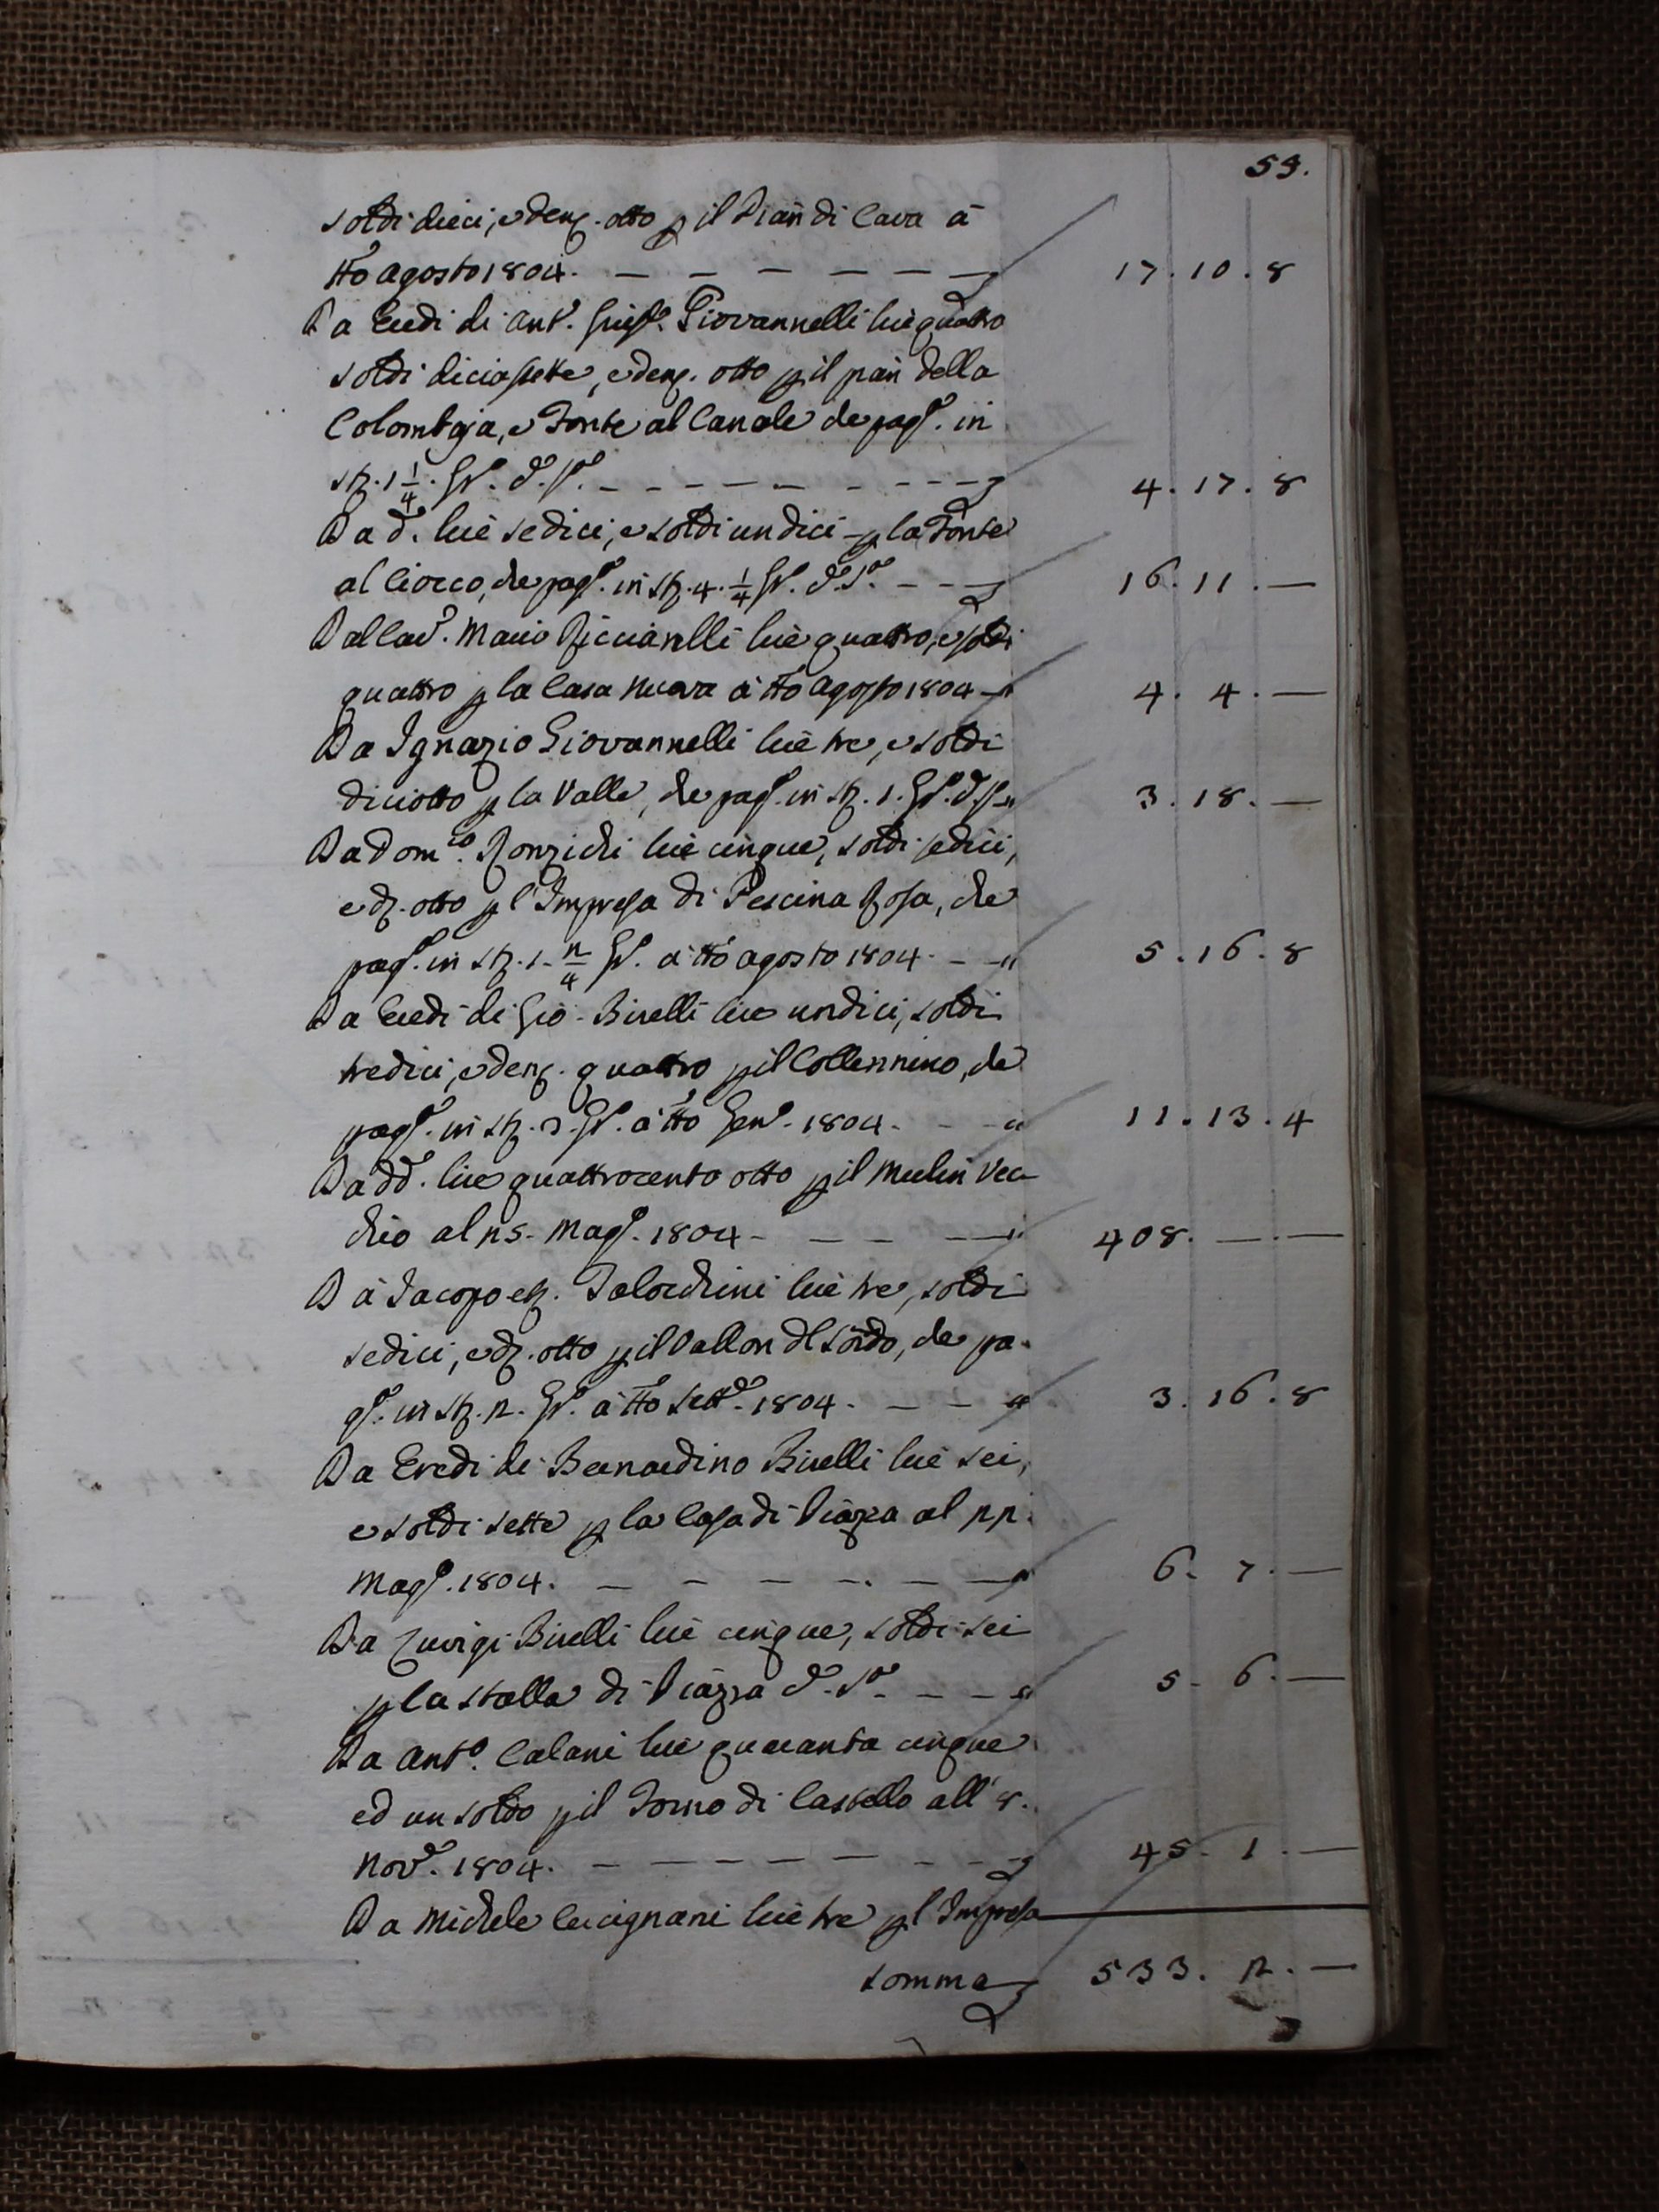 59.
soldi dieci, e den. otto p il Pian di Cava à
tto agosto 1804. — — — — — — 17. 10. 8
Da Eredi di Ant.o Giusp.e Giovannelli lire quattro
soldi diciassette, e den. otto p il pian della
Colombaja, e Fonte al Canale da pag.si in
st. 1 1/4. Gr.o d.o s.o — — — — — — 4. 17. 8
Da d.o lire sedici, e soldi undici p la Fonte
al Ciocco, da pag.si in st. 4. 1/4 Gr.o d.o s.o — — 16. 11. —
Dal Cav.e Mario Ricciarelli lire quattro, e soldi
quattro p la Casa nuova à tto Agosto 1804 — 4. 4. —
Da Ignazio Giovannelli lire tre, e soldi
diciotto p la Valle, da pag.si in st. 1. Gr.o d.o s.o 3. 18. —
Da Dom.co Ronzichi lire cinque, soldi sedici,
e d. otto p l'Impresa di Pescina Rosa, da
pag.si in st. 1. 2/4 Gr.o à tto agosto 1804. — 5. 16. 8
Da Eredi di Gio. Birelli lire undici, soldi
tredici, e den. quattro p il Collennino, da
pag.si in st. 3. Gr.o à tto Gen.o 1804. — 11. 13. 4
Da dd.i lire quattrocento otto p il Mulin Vec
chio al 25. Mag.o 1804 — — — 408. — —
Da Jacopo e fr. Talocchini lire tre, soldi
sedici, e d. otto p il Vallon del Sordo, da pa-
g.si in st. 2. Gr.o à tto Sett.e 1804. — — 3. 16. 8
Da Eredi di Bernardino Birelli lire sei,
e soldi sette p la Casa di Piazza al 22.
Mag.o 1804. — — — — — — 6. 7. —
Da Luigi Birelli lire cinque, soldi sei
p la stalla di Piazza d.o s.o — — — 5. 6. —
Da Ant.o Calani lire quaranta cinque
ed un soldo p il Forno di Castello all' 8.
Nov.e 1804. — — — — — — 45. 1. —
Da Michele Cucignani lire tre p l'Impresa
somma 533. 2. —